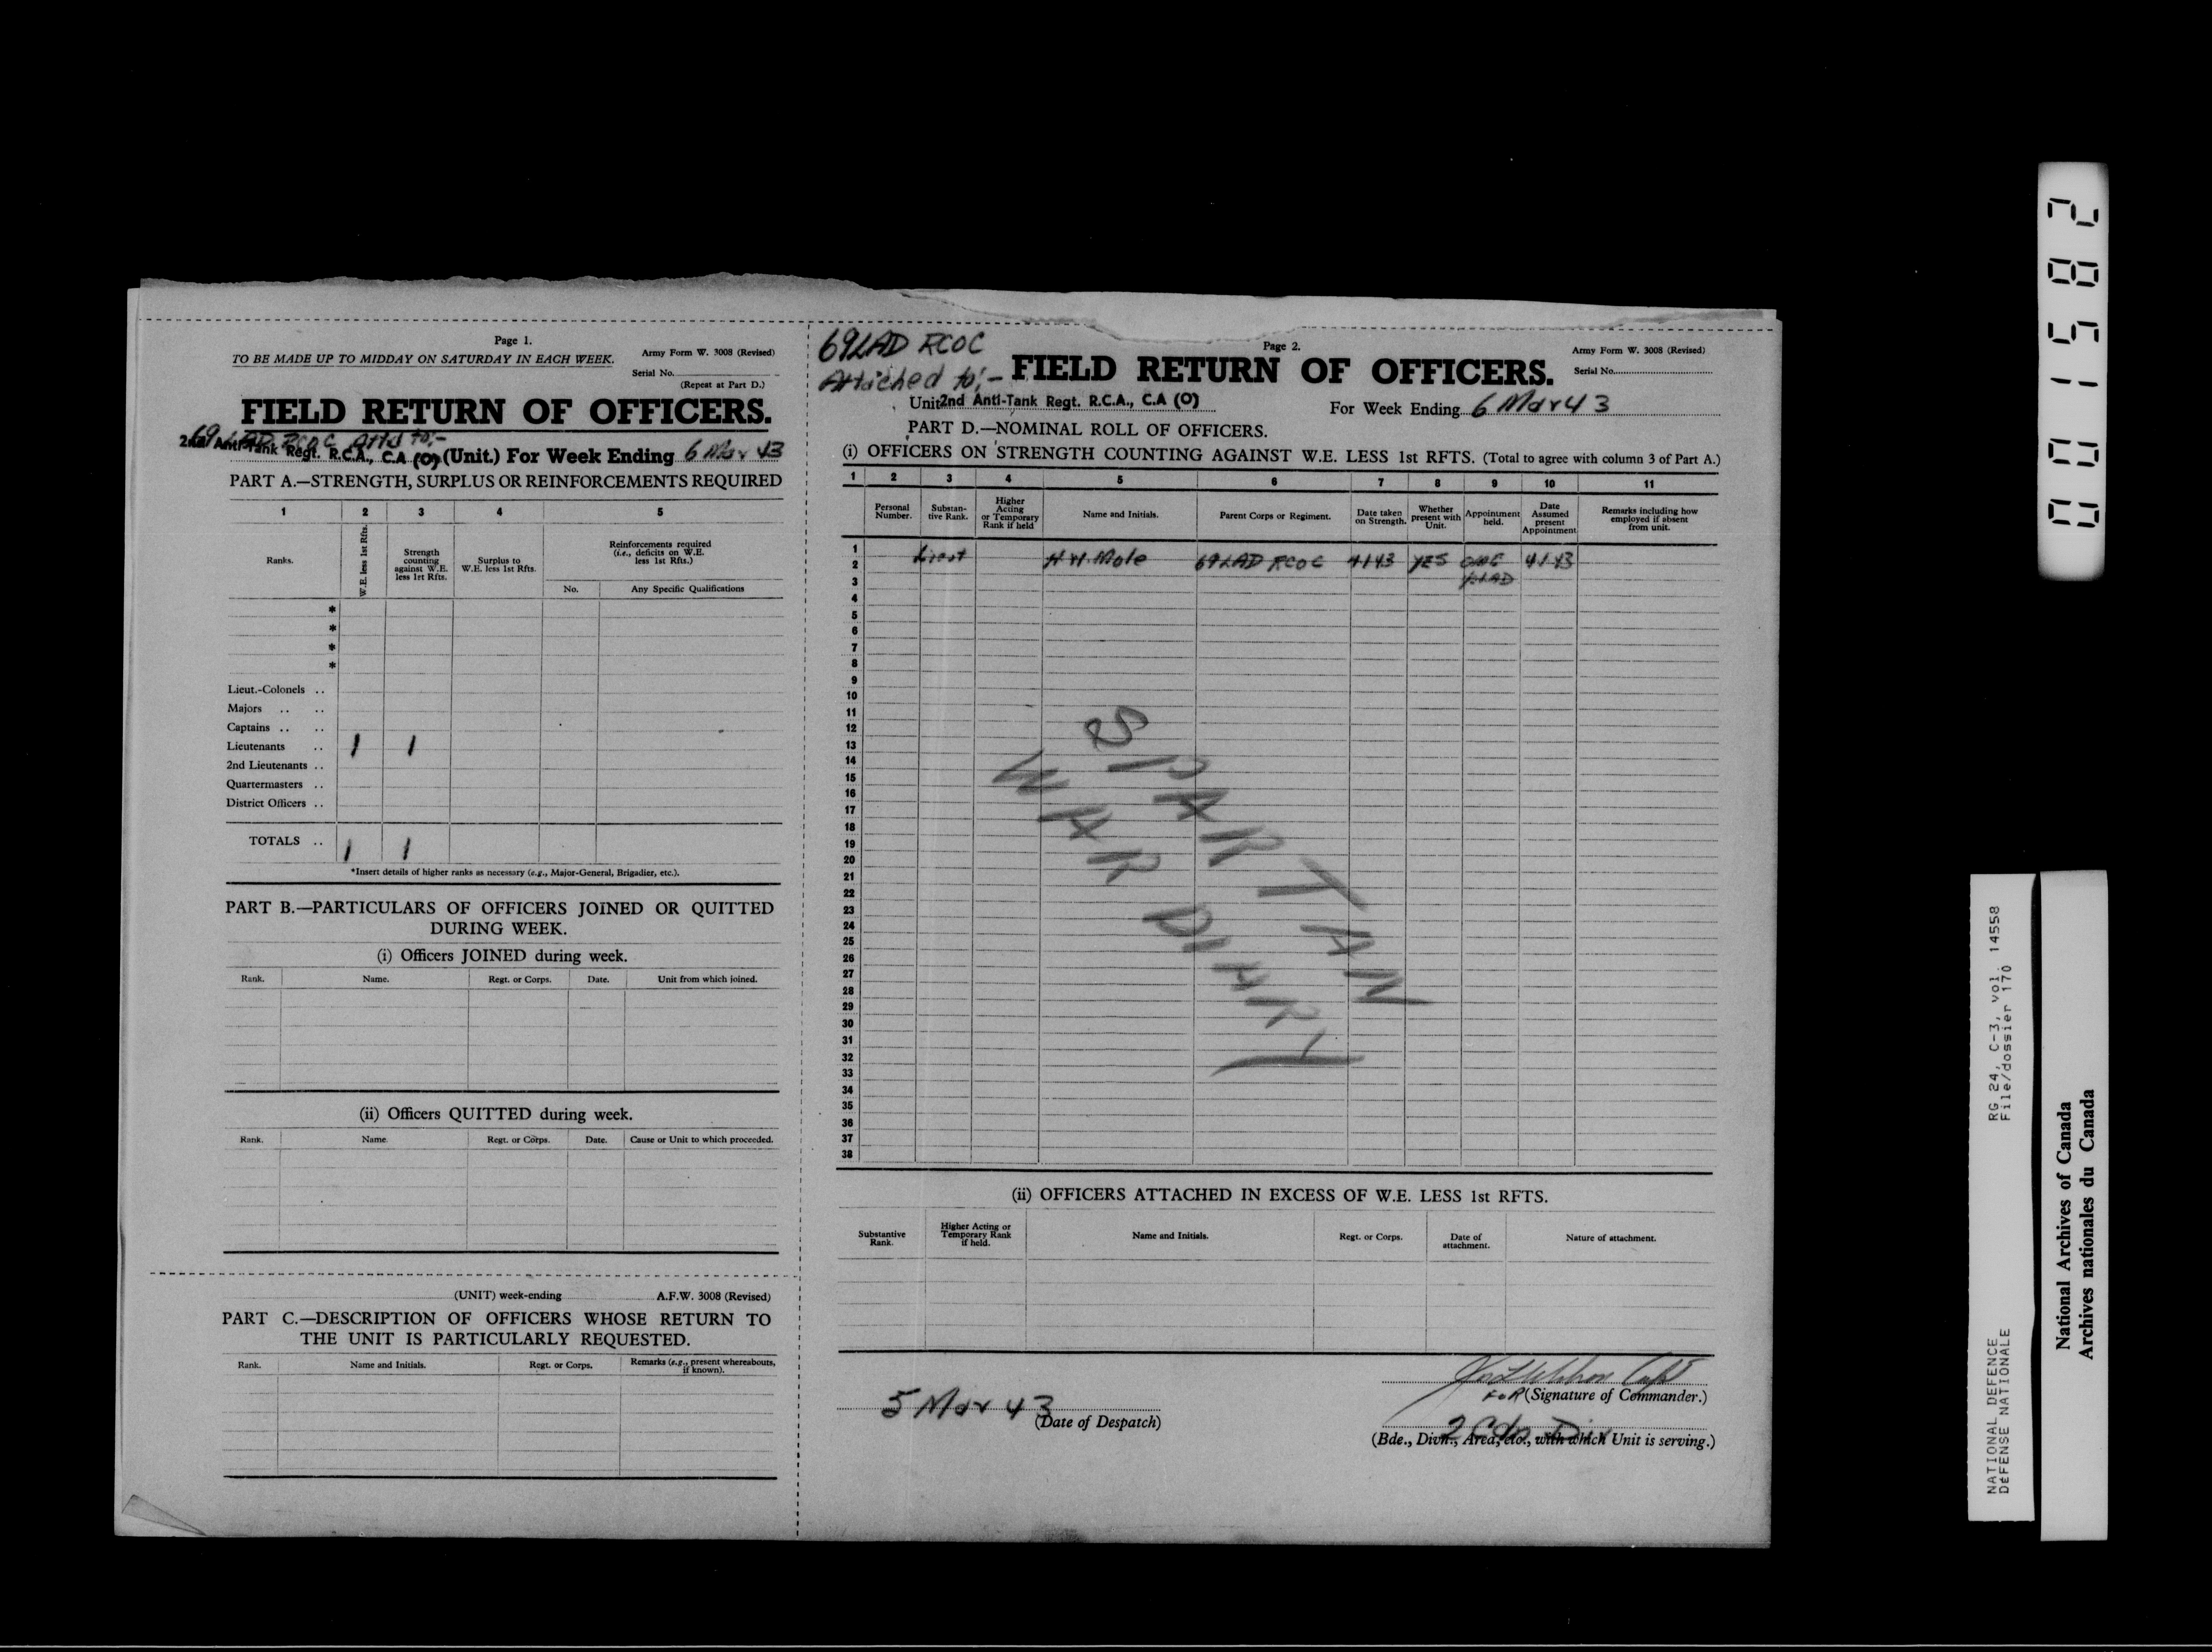 Page 1.
TO BE MADE UP TO MIDDAY ON SATURDAY IN EACH WEEK.
Army Form W. 3008 (Revised)
Serial No.
(Repeat at Part D.)
FIELD RETURN OF OFFICERS.
69 LAD RCOC Attd to:-
2nd Anti-Tank Regt. R.C.A., C.A (O) (Unit.) For Week Ending 6 Mar 43
PART A.—STRENGTH, SURPLUS OR REINFORCEMENTS REQUIRED
1 2 3 4 5
Ranks.
W.E. less 1st Rfts.
Strength counting against W.E. less 1rt Rfts.
Surplus to W.E. less 1st Rfts.
Reinforcements required (i.e., deficits on W.E. less 1st Rfts.)
No. Any Specific Qualifications
*
*
*
*
Lieut.-Colonels ..
Majors .. ..
Captains .. ..
Lieutenants .. 1 1
2nd Lieutenants ..
Quartermasters ..
District Officers ..
TOTALS .. 1 1
*Insert details of higher ranks as necessary (e.g., Major-General, Brigadier, etc.).
PART B.—PARTICULARS OF OFFICERS JOINED OR QUITTED
DURING WEEK.
(i) Officers JOINED during week.
Rank. Name. Regt. or Corps. Date. Unit from which joined.
(ii) Officers QUITTED during week.
Rank. Name. Regt. or Corps. Date. Cause or Unit to which proceeded.
(UNIT) week-ending A.F.W. 3008 (Revised)
PART C.—DESCRIPTION OF OFFICERS WHOSE RETURN TO
THE UNIT IS PARTICULARLY REQUESTED.
Rank. Name and Initials. Regt. or Corps. Remarks (e.g., present whereabouts, if known).
69 LAD RCOC
Attached to:-
Page 2.
Army Form W. 3008 (Revised)
FIELD RETURN OF OFFICERS.
Serial No.
Unit 2nd Anti-Tank Regt. R.C.A., C.A (O)
For Week Ending 6 Mar 43
PART D.—NOMINAL ROLL OF OFFICERS.
(i) OFFICERS ON STRENGTH COUNTING AGAINST W.E. LESS 1st RFTS. (Total to agree with column 3 of Part A.)
1 2 3 4 5 6 7 8 9 10 11
Personal Number.
Substan-tive Rank.
Higher Acting or Temporary Rank if held
Name and Initials.
Parent Corps or Regiment.
Date taken on Strength.
Whether present with Unit.
Appointment held.
Date Assumed present Appointment
Remarks including how employed if absent from unit.
1
2 Lieut H.H. Mole 69 LAD RCOC 4-1-43 YES LAD 4-1-43
3
4
5
6
7
8
9
10
11
12
13
14
15
16
17
18
19
20
21
22
23
24
25
26
27
28
29
30
31
32
33
34
35
36
37
38
SPARTAN
WAR DIARY
(ii) OFFICERS ATTACHED IN EXCESS OF W.E. LESS 1st RFTS.
Substantive Rank.
Higher Acting or Temporary Rank if held.
Name and Initials.
Regt. or Corps.
Date of attachment.
Nature of attachment.
Capt
FOR (Signature of Commander.)
5 Mar 43
(Date of Despatch)
2 Cdn Div
(Bde., Divn., Area, etc., with which Unit is serving.)
001582
RG 24, C-3, vol. 14558
File/dossier 170
NATIONAL DEFENCE
DÉFENSE NATIONALE
National Archives of Canada
Archives nationales du Canada